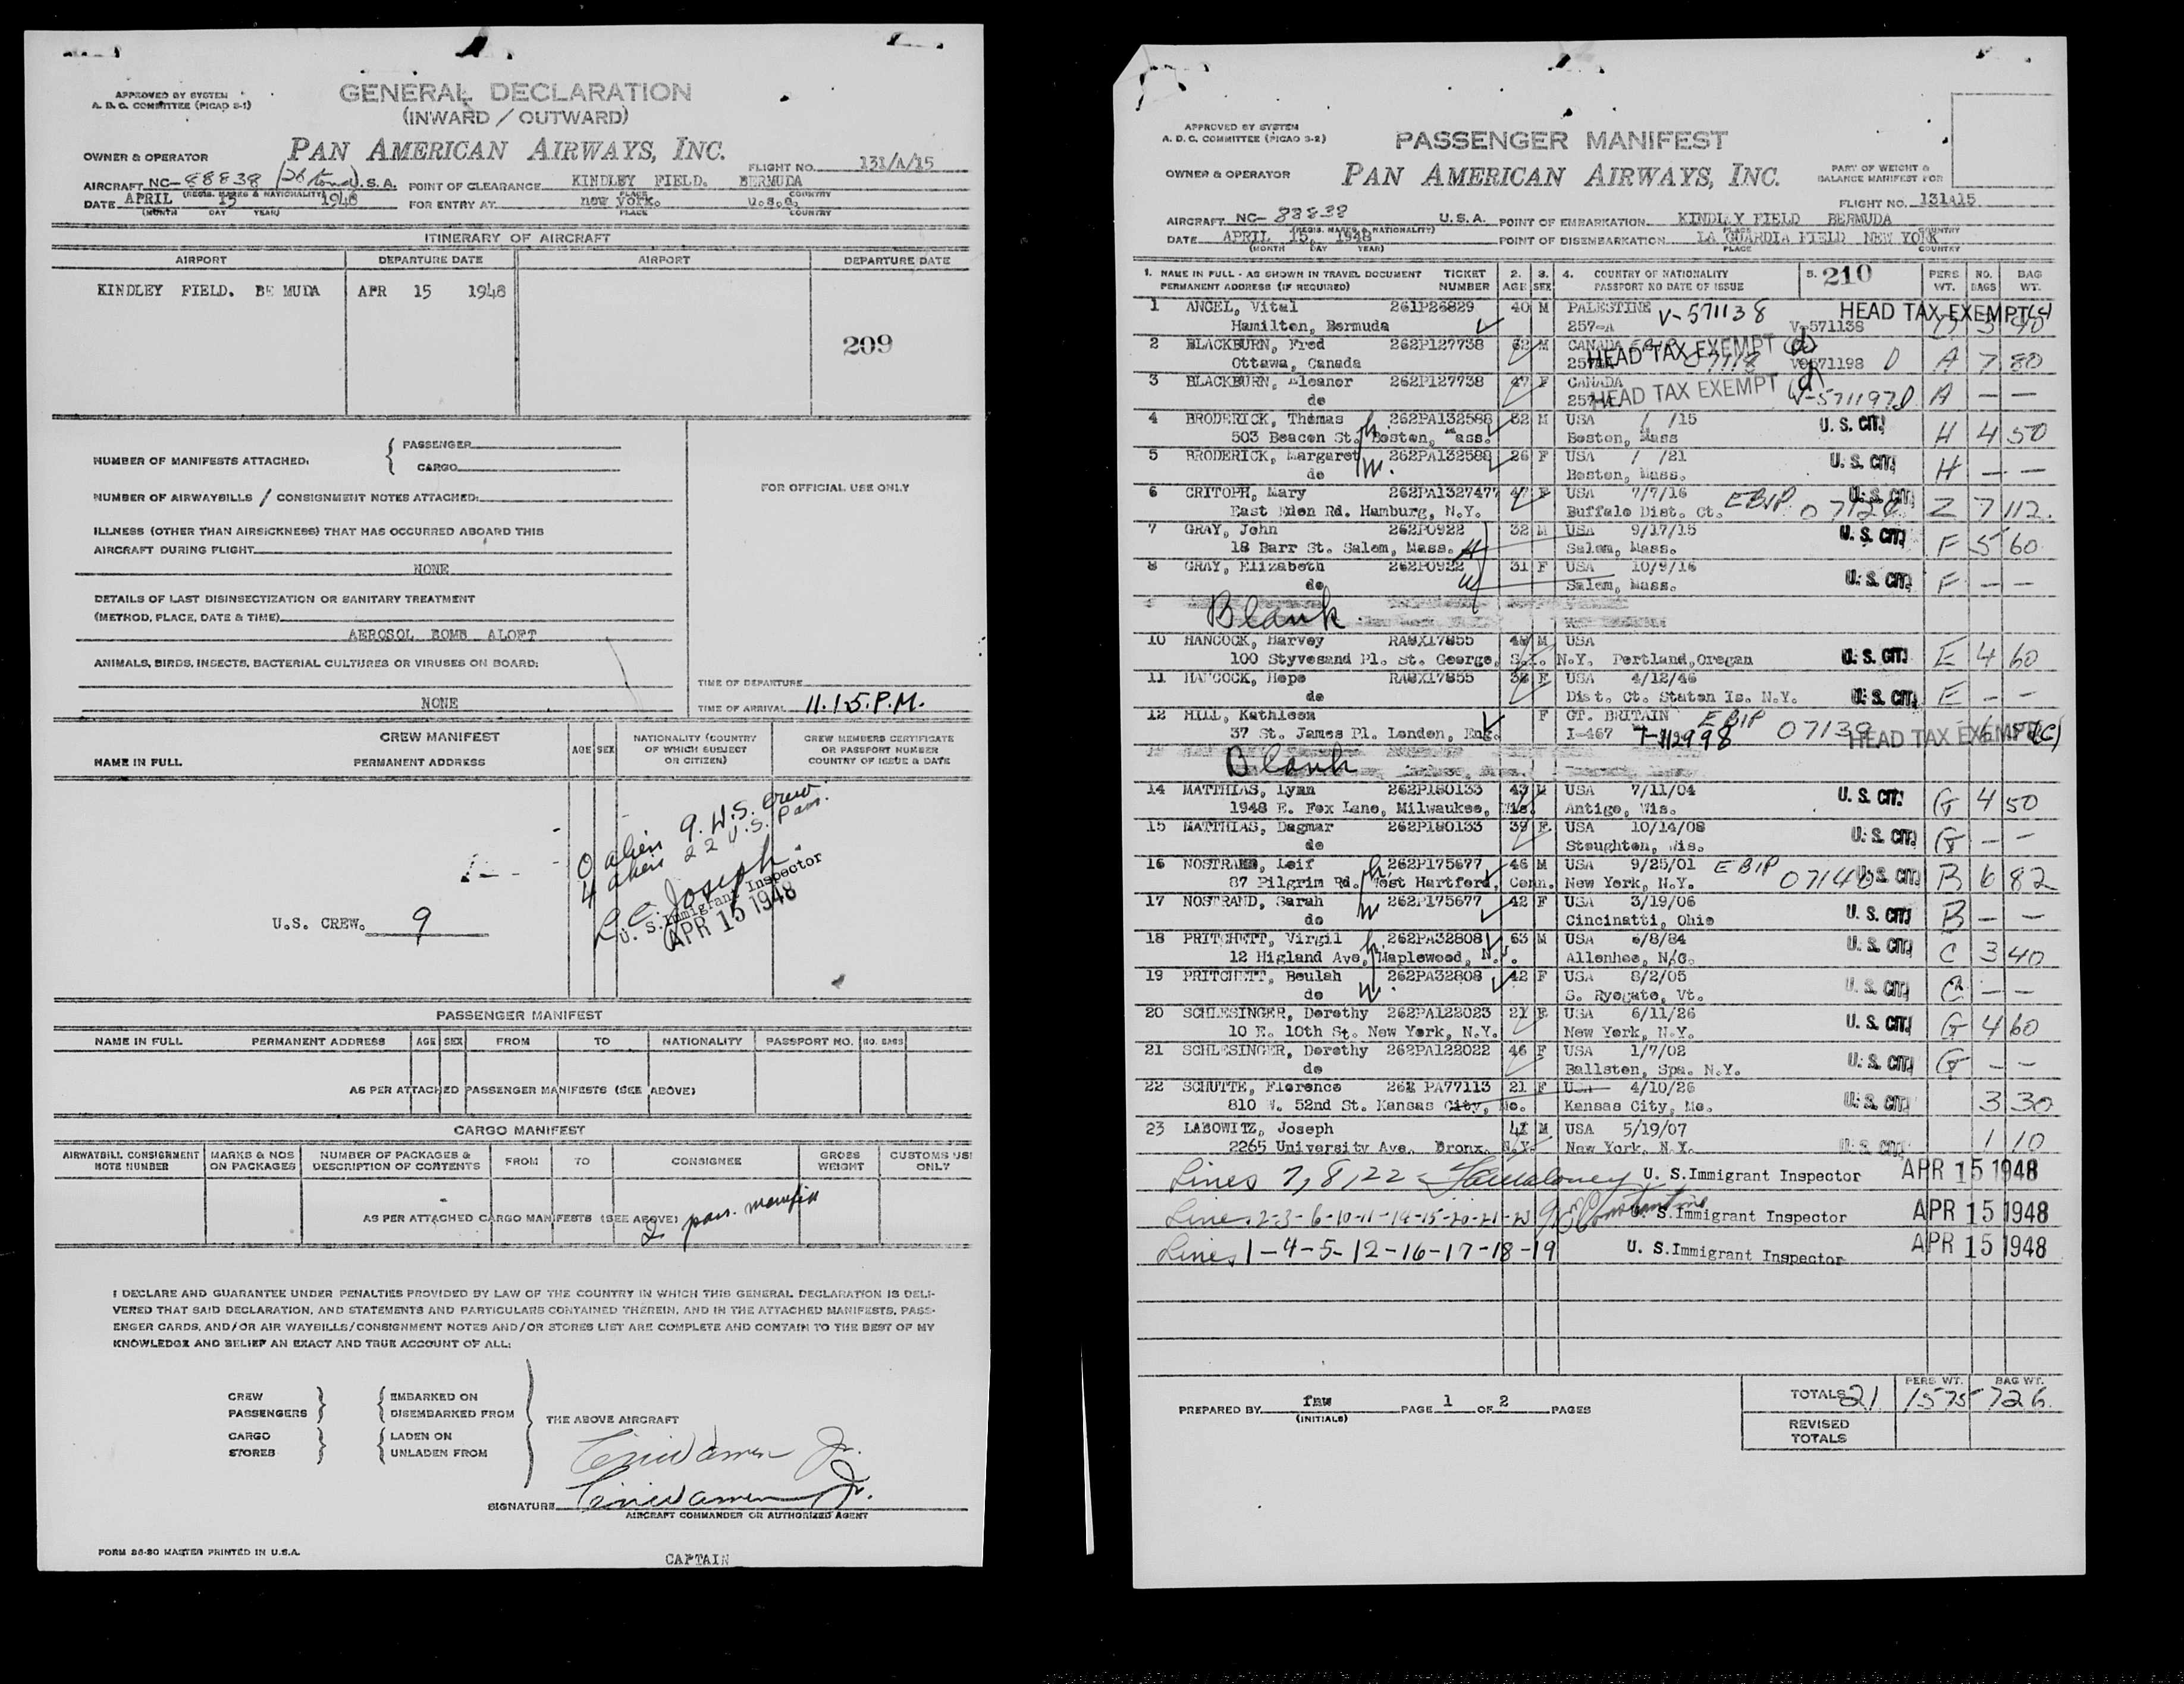 APPROVED BY SYSTEM
A. D. C. COMMITTEE (PICAO S-1)
GENERAL DECLARATION
(INWARD / OUTWARD)
OWNER & OPERATOR PAN AMERICAN AIRWAYS, INC.
FLIGHT NO. 131/A/15
AIRCRAFT NC- 88838 U.S.A. POINT OF CLEARANCE KINDLEY FIELD. BERMUDA
(REGIS. MARKS & NATIONALITY) PLACE COUNTRY
DATE APRIL 15 1948 FOR ENTRY AT new york. u.s.a.
(MONTH DAY YEAR) PLACE COUNTRY
ITINERARY OF AIRCRAFT
AIRPORT DEPARTURE DATE AIRPORT DEPARTURE DATE
KINDLEY FIELD. BE MUDA APR 15 1948
209
NUMBER OF MANIFESTS ATTACHED: PASSENGER
CARGO
NUMBER OF AIRWAYBILLS / CONSIGNMENT NOTES ATTACHED:
FOR OFFICIAL USE ONLY
ILLNESS (OTHER THAN AIRSICKNESS) THAT HAS OCCURRED ABOARD THIS
AIRCRAFT DURING FLIGHT
NONE
DETAILS OF LAST DISINSECTIZATION OR SANITARY TREATMENT
(METHOD, PLACE, DATE & TIME)
AEROSOL BOMB ALOFT
ANIMALS, BIRDS, INSECTS, BACTERIAL CULTURES OR VIRUSES ON BOARD:
NONE
TIME OF DEPARTURE
TIME OF ARRIVAL 11.15.P.M.
CREW MANIFEST
NAME IN FULL PERMANENT ADDRESS AGE SEX
NATIONALITY (COUNTRY OF WHICH SUBJECT OR CITIZEN)
CREW MEMBERS CERTIFICATE OR PASSPORT NUMBER COUNTRY OF ISSUE & DATE
0 alien 9 U.S. crew
4 alien 22 U.S. Pass.
L.C. Joseph
U. S. Immigrant Inspector
APR 15 1948
U.S. CREW. 9
PASSENGER MANIFEST
NAME IN FULL PERMANENT ADDRESS AGE SEX FROM TO NATIONALITY PASSPORT NO. NO. BAGS
AS PER ATTACHED PASSENGER MANIFESTS (SEE ABOVE)
CARGO MANIFEST
AIRWAYBILL CONSIGNMENT NOTE NUMBER MARKS & NOS ON PACKAGES NUMBER OF PACKAGES & DESCRIPTION OF CONTENTS FROM TO CONSIGNEE GROSS WEIGHT CUSTOMS USE ONLY
AS PER ATTACHED CARGO MANIFESTS (SEE ABOVE)
2 pass. manifest
I DECLARE AND GUARANTEE UNDER PENALTIES PROVIDED BY LAW OF THE COUNTRY IN WHICH THIS GENERAL DECLARATION IS DELI-
VERED THAT SAID DECLARATION, AND STATEMENTS AND PARTICULARS CONTAINED THEREIN, AND IN THE ATTACHED MANIFESTS, PASS-
ENGER CARDS, AND/OR AIR WAYBILLS/CONSIGNMENT NOTES AND/OR STORES LIST ARE COMPLETE AND CONTAIN TO THE BEST OF MY
KNOWLEDGE AND BELIEF AN EXACT AND TRUE ACCOUNT OF ALL:
CREW EMBARKED ON
PASSENGERS DISEMBARKED FROM
THE ABOVE AIRCRAFT
CARGO LADEN ON
STORES UNLADEN FROM
SIGNATURE
AIRCRAFT COMMANDER OR AUTHORIZED AGENT
FORM 26-20 MASTER PRINTED IN U.S.A.
CAPTAIN
APPROVED BY SYSTEM
A. D. C. COMMITTEE (PICAO S-2)
PASSENGER MANIFEST
OWNER & OPERATOR PAN AMERICAN AIRWAYS, INC.
PART OF WEIGHT & BALANCE MANIFEST FOR
FLIGHT NO. 131A15
AIRCRAFT NC- 88838 U.S.A. POINT OF EMBARKATION KINDLEY FIELD BERMUDA
(REGIS. MARKS & NATIONALITY) PLACE COUNTRY
DATE APRIL 15, 1948 POINT OF DISEMBARKATION LA GUARDIA FIELD NEW YORK
(MONTH DAY YEAR) PLACE COUNTRY
1. NAME IN FULL - AS SHOWN IN TRAVEL DOCUMENT TICKET 2. 3. 4. COUNTRY OF NATIONALITY 5. 210 PERS NO. BAG
PERMANENT ADDRESS (IF REQUIRED) NUMBER AGE SEX PASSPORT NO DATE OF ISSUE WT. BAGS WT.
1 ANGEL, Vital 261P26829 40 M PALESTINE V-571138 HEAD TAX EXEMPT
Hamilton, Bermuda 257-A V-571138
2 BLACKBURN, Fred 262P127738 62 M CANADA HEAD TAX EXEMPT (d)
Ottawa, Canada V-571198 D A 7 80
3 BLACKBURN, Eleanor 262P127738 47 F CANADA HEAD TAX EXEMPT (d)
de V-571197D A - -
4 BRODERICK, Thomas 262PA132588 32 M USA / /15 U. S. CIT.
503 Beacon St. Boston, Mass. Boston, Mass H 4 50
5 BRODERICK, Margaret 262PA132588 26 F USA / /21 U. S. CIT.
de Boston, Mass. H - -
6 CRITOPH, Mary 262PA132747 47 F USA 7/7/16 EBIP U. S. CIT.
East Eden Rd. Hamburg, N.Y. Buffalo Dist. Ct. Z 7 112.
7 GRAY, John 262P0922 32 M USA 9/17/15 U. S. CIT.
18 Barr St. Salem, Mass. Salem, Mass. F 5 60
8 GRAY, Elizabeth 262P0922 31 F USA 10/9/16 U. S. CIT.
de Salem, Mass. F - -
Blank
10 HANCOCK, Harvey RA8X17855 M USA
100 Styvesand Pl. St. George, S.I. N.Y. Portland, Oregan U. S. CIT. E 4 60
11 HANCOCK, Hope RA8X17855 38 F USA 4/12/46
de Dist. Ct. Staten Is. N.Y. U. S. CIT. E - -
12 HILL, Kathleen F GT. BRITAIN EBIP 07139
37 St. James Pl. London, Eng. I-467 HEAD TAX EXEMPT (c)
Blank
14 MATTHIAS, Lynn 262P180133 43 M USA 7/11/04 U. S. CIT.
1948 E. Fox Lane, Milwaukee, Wis. Antigo, Wis. G 4 50
15 MATTHIAS, Dagmar 262P180133 39 F USA 10/14/08 U. S. CIT.
de Stoughton, Wis. G - -
16 NOSTRAND, Leif 262P175677 46 M USA 9/25/01 EBIP U. S. CIT.
87 Pilgrim Rd. West Hartford, Conn. New York, N.Y. 07140 B 6 82
17 NOSTRAND, Sarah 262P175677 42 F USA 3/19/06 U. S. CIT.
de Cincinatti, Ohio B - -
18 PRITCHETT, Virgil 262PA32808 63 M USA 6/8/84 U. S. CIT.
12 Higland Ave, Maplewood, N.J. Allenhee, N/C. C 3 40
19 PRITCHETT, Beulah 262PA32808 42 F USA 8/2/05 U. S. CIT.
de S. Ryegate, Vt. C - -
20 SCHLESINGER, Dorothy 262PA122023 21 F USA 6/11/26 U. S. CIT.
10 E. 10th St. New York, N.Y. New York, N.Y. G 4 60
21 SCHLESINGER, Dorothy 262PA122022 46 F USA 1/7/02 U. S. CIT.
de Ballston, Spa. N.Y. G - -
22 SCHUTTE, Florence 262 PA77113 21 F USA 4/10/26 U. S. CIT.
810 W. 52nd St. Kansas City, Mo. Kansas City, Mo. 3 30
23 LABOWITZ, Joseph 41 M USA 5/19/07
2265 University Ave. Bronx. N.Y. New York, N.Y. U. S. CIT. 1 10
Lines 7, 8, 22 U. S. Immigrant Inspector APR 15 1948
Lines 2-3-6-10-11-14-15-20-21-23 U. S. Immigrant Inspector APR 15 1948
Lines 1-4-5-12-16-17-18-19 U. S. Immigrant Inspector APR 15 1948
PERS WT. BAG WT.
PREPARED BY faw PAGE 1 OF 2 PAGES TOTALS 21 1575 726
(INITIALS)
REVISED TOTALS